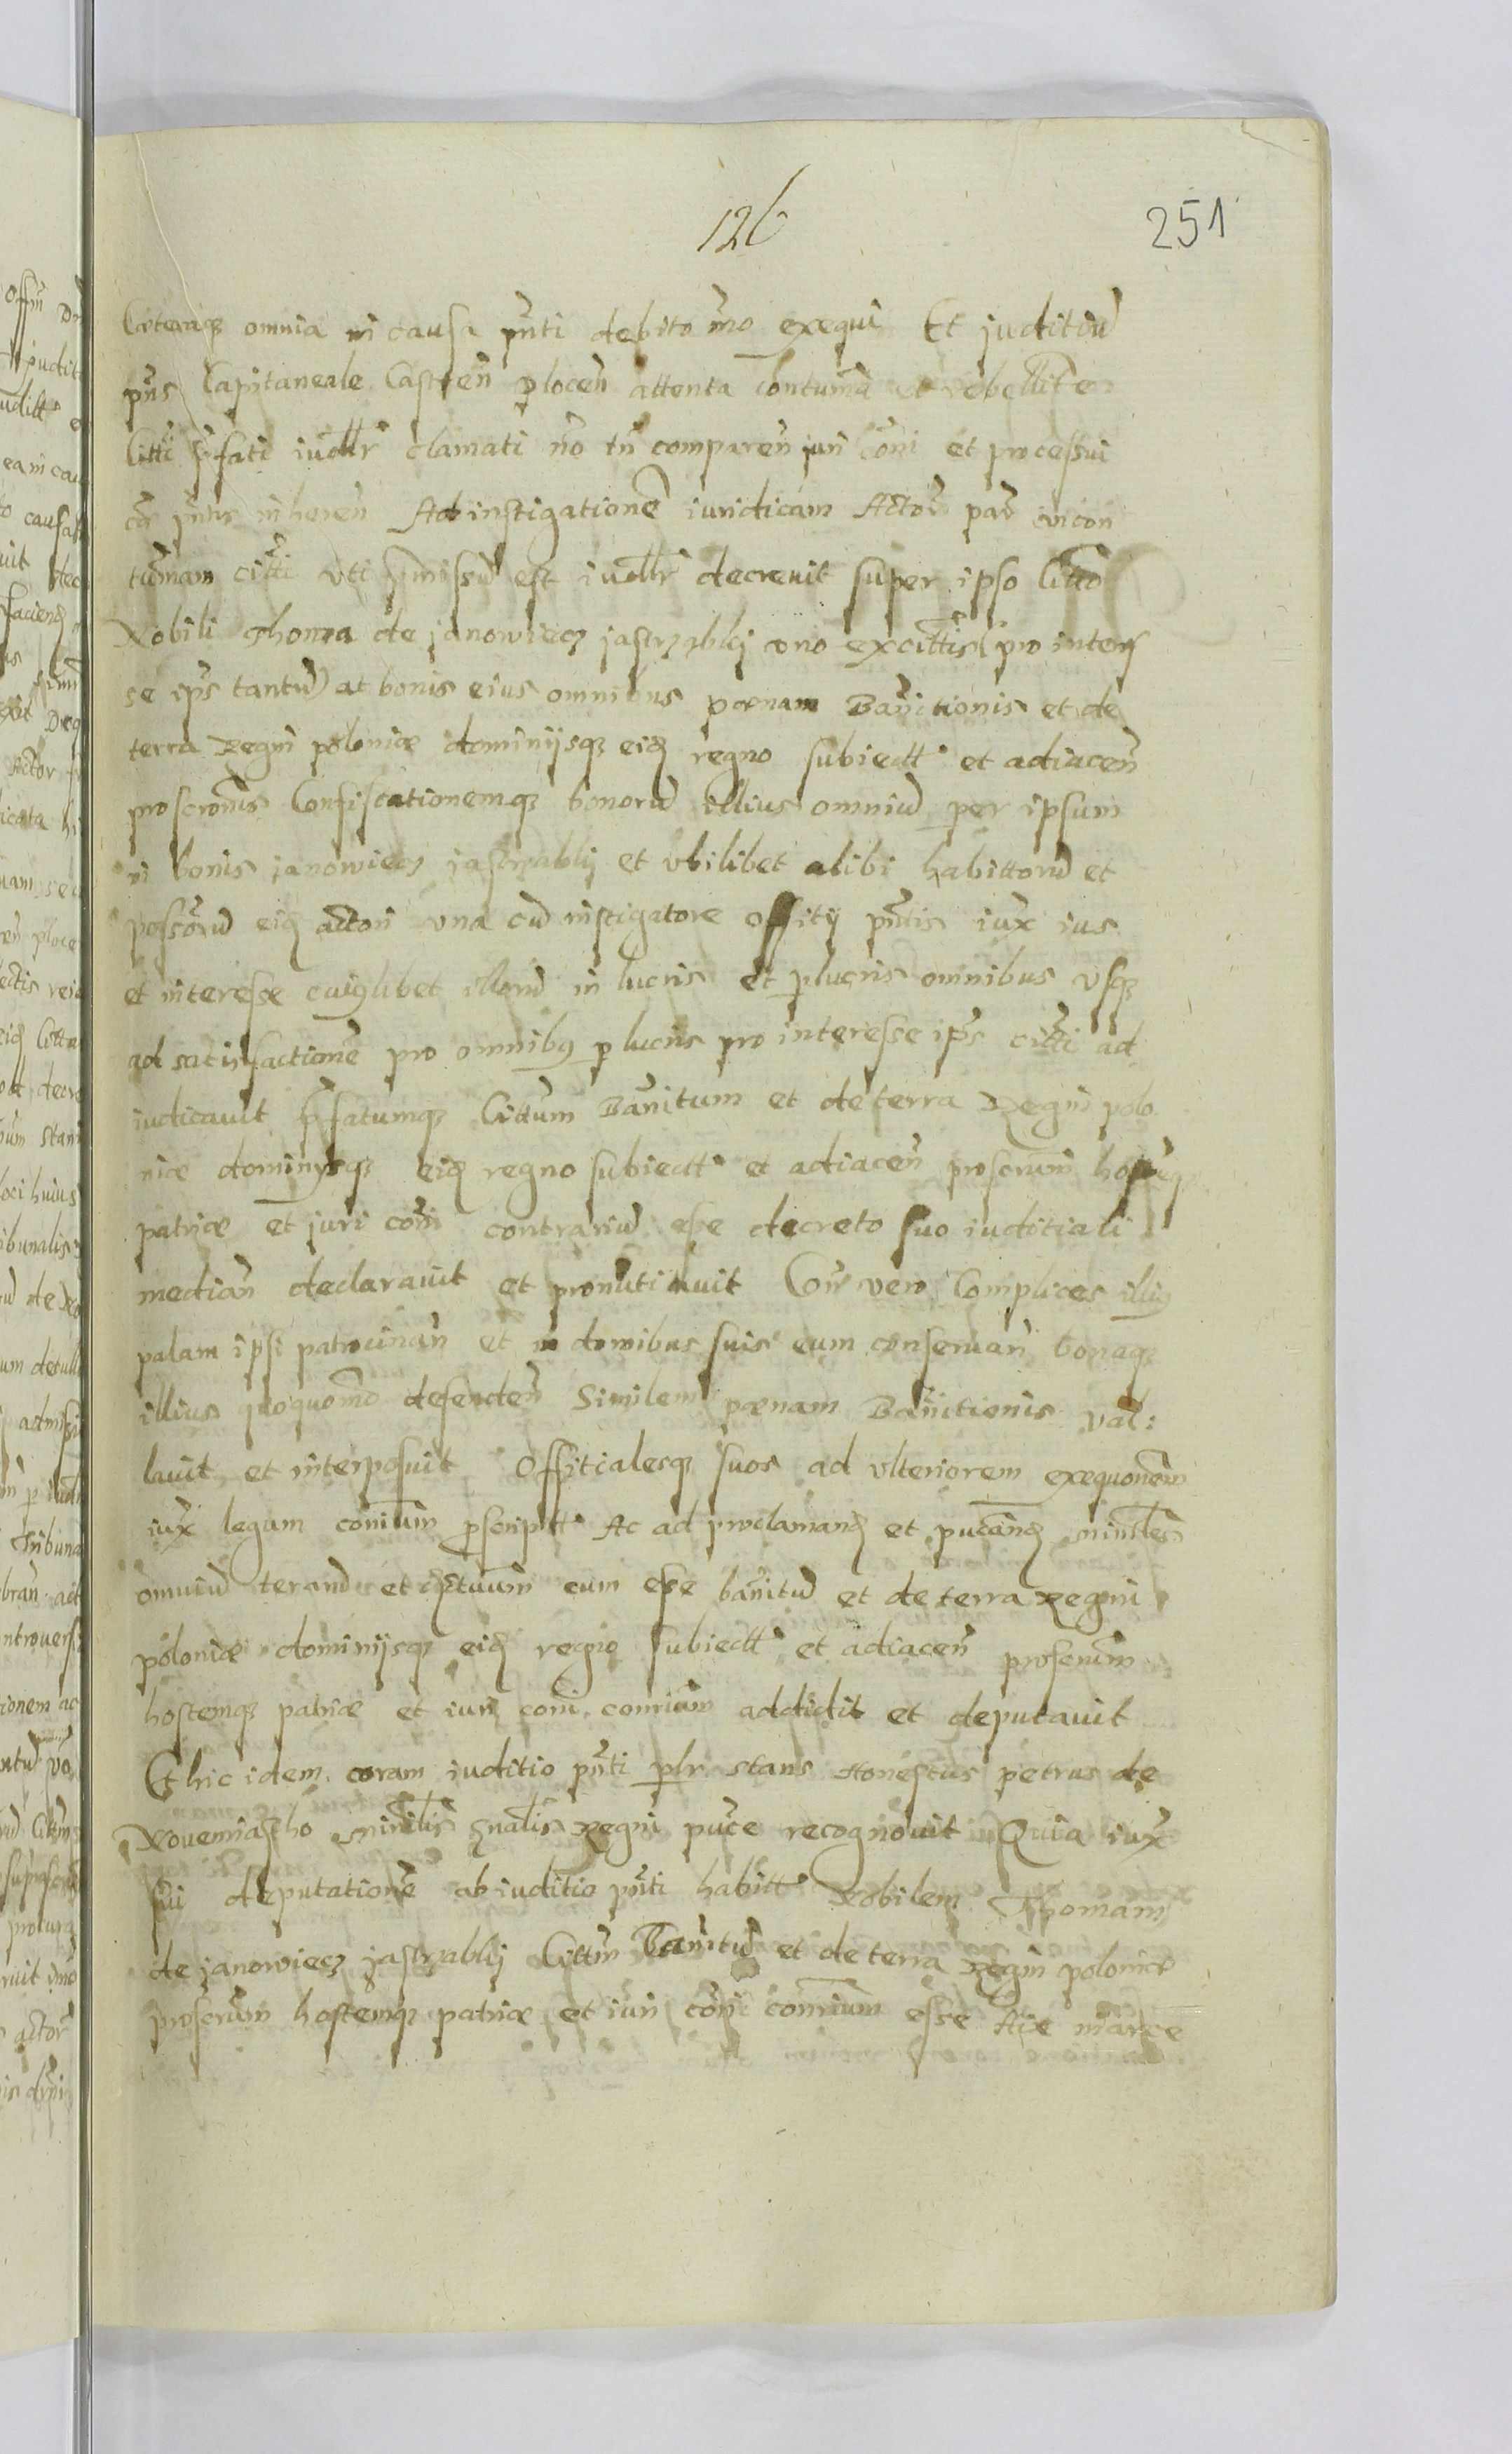 126
251
Cæteraq; omnia in causa pñti debito mo exequi Et juditiũ
pñs Capitaneale Castreñ plocen attenta contuma et rebellite
Citti p̃fati iudllr clamati no tñ compareñ juri coni et processui
cor pñtis inhereñ Ad instigationẽ iuridicam Actor par in con
tumam citti vti p̃missũ est iudllr decrevit super ipso Citto
Nobili Thoma de janowiecz jastrząbky vno ex cittis (pro interes
se ips tantũ) at bonis eius omnibus pœnam Bañitionis et de
terra Regni poloniæ dominijsq; eid regno subiectt et adiaceñ
proscronis Confiscationemq; bonorũ illius omniũ per ipsum
in bonis janowiecz jastrząbky et vbilibet alibi habittorũ et
possorũ eid actori vna cũ instigatore offitij pñtis iux ius
et interesse cuiuslibet illorũ in lucris et p lucris omnibus vsq;
ad satisfactionẽ pro omnibus p lucris pro interesse ips citti ad
iudicauit p̃fatumq; Cittum Bañitum et de terra Regni polo
niæ dominijsq; eid regno subiectt et adiaceñ proscrum hostemq;
patriæ et juri coni contrariũ esse decreto suo iuditiali
median declarauit et pronũtiauit Cores vero Complices illius
palam ipsi patrocinañ et in domibus suis eum conseruañ bonaq;
illius quoquomo defendeñ Similem pœnam Bañitionis val:
lauit et interposuit Offitialesq; suos ad vlteriorem exequonem
iux legum coniũm p̃scriptt Ac ad proclamand et pucand ministles
omniũ terarũ et distuum eum esse bañitũ et de terra Regni
poloniæ dominijsq; eid regno subiectt et adiaceñ proscrum
hostemq; patriæ et juri coni conrium addidit et deputauit
Et hic idem coram iuditio pñti plr stans Honestus petrus de
Nouemiastho ministlis gnalis Regni puce recognouit Quia iux
sui deputationẽ ab iuditio pñti habitt Nobilem Thomam
de janowiecz jastrząbky Cittm Bañitũ et de terra Regni poloniæ
proscrum hostemq; patriæ et juri coni conrium esse